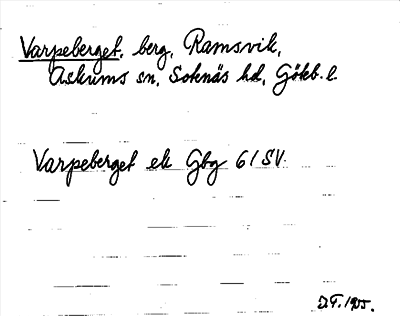 Varpeberget, berg, Ramsvik,
Askums sn, Sotenäs hd, Götb. l.
Varpeberget ek Gbg 61 SV.